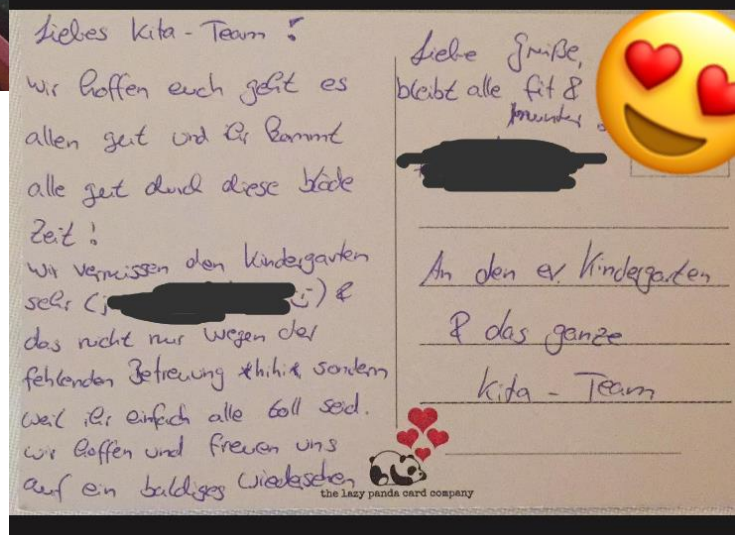 Liebes Kita-Team!
wir hoffen euch geht es
allen gut und ihr kommt
alle gut durch diese blöde
Zeit!
Wir vermissen den Kindergarten
sehr (j :) &
das nicht nur wegen der
fehlenden Betreuung *hihi*, sondern
weil ihr einfach alle toll seid.
wir hoffen und freuen uns
auf ein baldiges Wiedersehen
Liebe Grüße,
bleibt alle fit &
munter
An den ev. Kindergarten
& das ganze
Kita-Team
the lazy panda card company